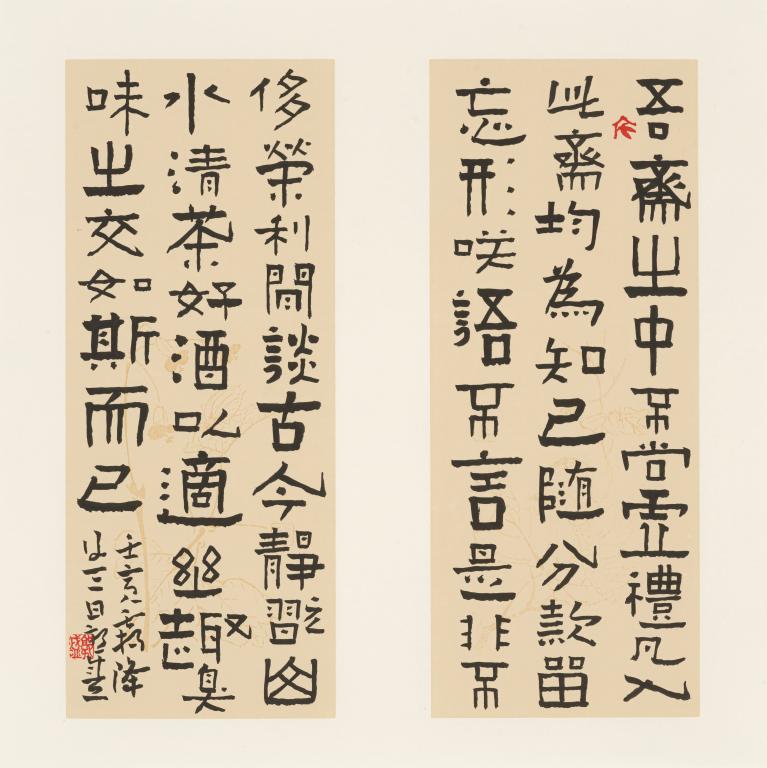 吾齋之中不尚虛禮凡入
此齋均為知己隨分款留
忘形咲語不言是非不
侈榮利閒談古今靜翫山
水清茶好酒以適幽趣臭
味之交如斯而已
霜降
三日